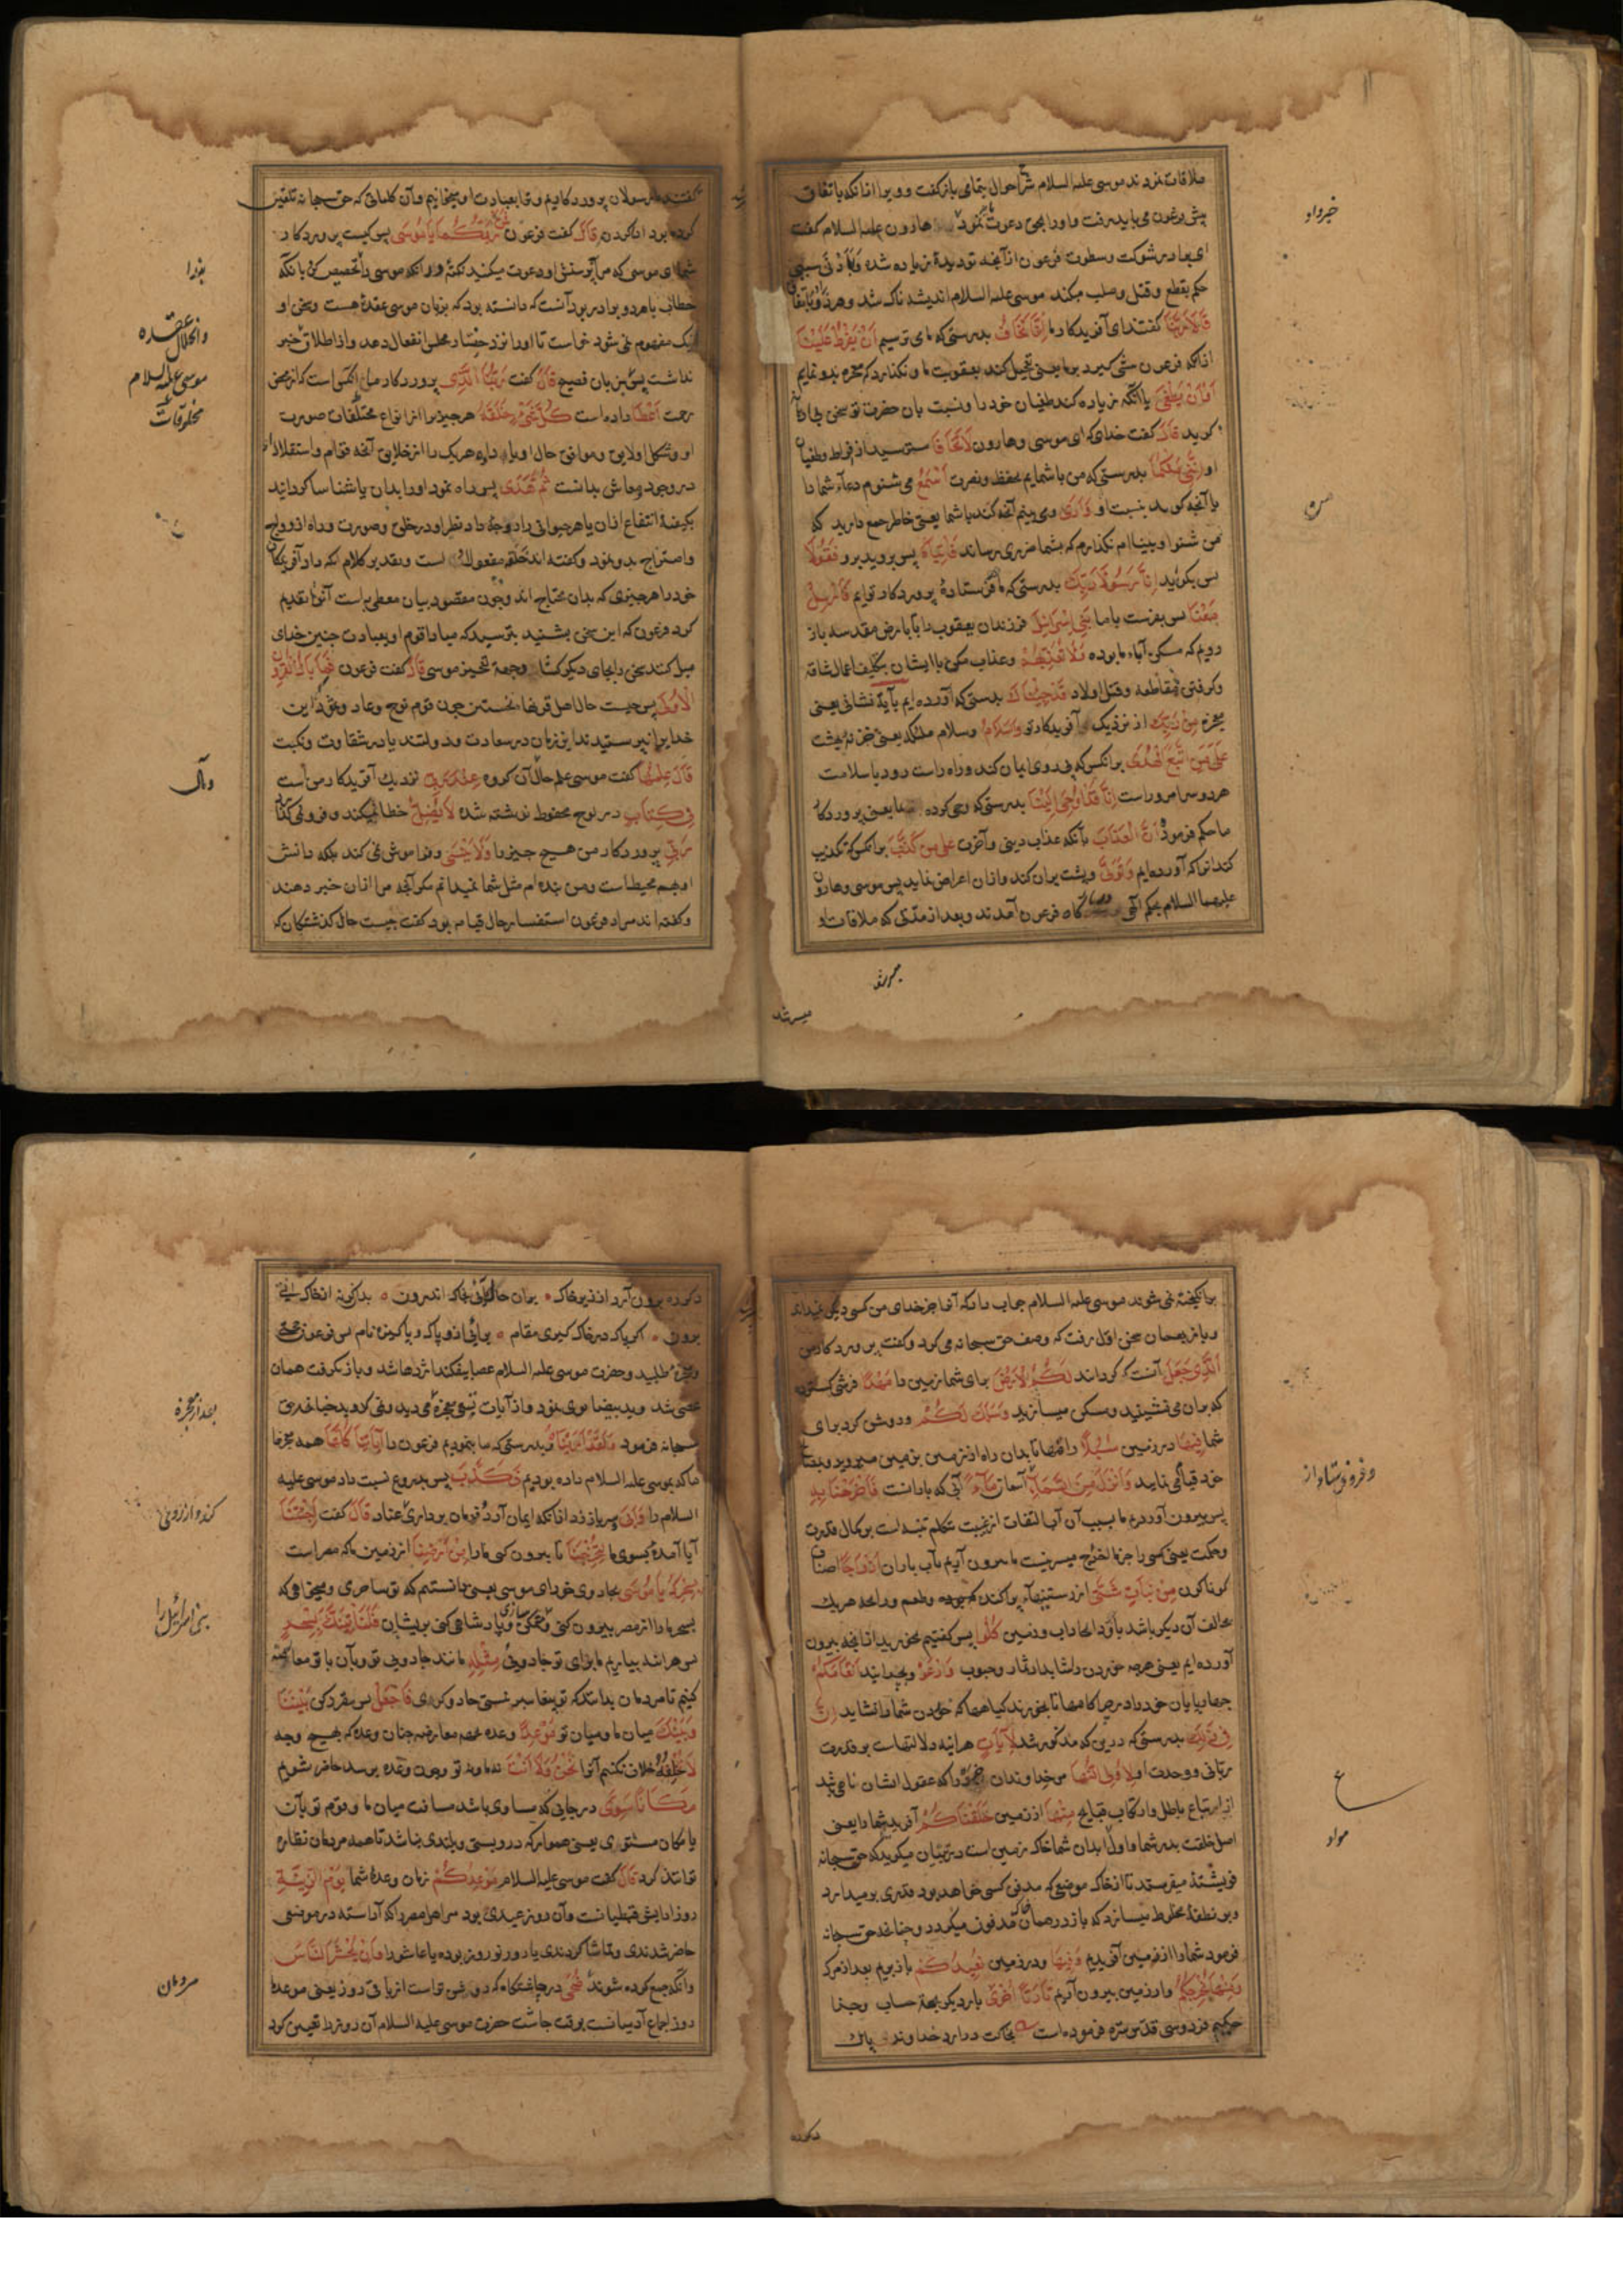 ملاقات نمودند موسی علیه السلام شرح احوال بتمامی باز گفت و ویرا از آنکه باتفاق
پیش فرعون می باید رفت و او را بحق دعوت نمود هارون علیه السلام کفت
ای برادر شوکت و سطوت فرعون از آنچه تو دیدۀ زیاده شده و بادنی سببی
حکم بقطع و قتل و صلب میکند موسی علیه السلام اندیشه ناک شد و هردو باتفاق
قَالَا رَبَّنَا کفتند ای آفریدکار ما اِنَّنَا نَخَافُ بدرستی که ما می ترسیم اَنْ يَفْرُطَ عَلَيْنَا
از آنکه فرعون پیشی کیرد بر ما یعنی تعجیل کند بعقوبت ما و نکذارد که معجزه بدو نمایم
اَوْ اَنْ يَطْغٰى یا آنکه زیاده کند طغیان خود را و نسبت بان حضرت تو سخن بی ادبانه
کوید قَالَ کفت خدای که ای موسی و هارون لَا تَخَافَا مترسید از افراط و طغیان
او اِنَّنِي مَعَكُمَا بدرستی که من با شمایم بحفظ و نصرت اَسْمَعُ می شنوم دعاء شما را
یا آنچه کوید بنسبت او وَاَرٰى و می بینم آنچه کند با شما یعنی خاطر جمع دارید که
من شنوا و بینا ام نکذارم که بشما ضرری رساند فَأْتِيَاهُ پس بروید برو فَقُولَا
پس بکوئید اِنَّا رَسُولَا رَبِّكَ بدرستی که ما فرستادۀ پروردکار توایم فَاَرْسِلْ
مَعَنَا پس بفرست با ما بَنِي اِسْرَائِيلَ فرزندان یعقوب را تا بارض مقدسه باز
رویم که مسکن آباء ما بوده وَلَا تُعَذِّبْهُمْ و عذاب مکن با ایشان بتکلیف اعمال شاقه
و کرفتن مقاطعه و قتل اولاد قَدْ جِئْنَاكَ بدرستی که آورده ایم بِآيَةٍ نشانی یعنی
معجزه مِنْ رَبِّكَ از نزدیک آفریدکار تو وَالسَّلَامُ و سلام ملائکه یعنی خزنۀ بهشت
عَلٰى مَنِ اتَّبَعَ الْهُدٰى بر انکس که پی روی ایمان کند و راه راست رود یا سلامت
هردو سرا مر او راست اِنَّا قَدْ اُوحِيَ اِلَيْنَا بدرستی که وحی کرده بما یعنی پروردکار
ما حکم فرمود اَنَّ الْعَذَابَ بآنکه عذاب دینی و آخرت عَلٰى مَنْ كَذَّبَ بر انکس که تکذیب
کند آنرا که آورده ایم وَتَوَلّٰى و پشت بر ان کند و از ان اعراض نماید پس موسی و هارون
علیهما السلام بحکم الهی بدرکاه فرعون آمدند و بعد از مدتی که ملاقات او
میسر شد
میسر شد
خبر داد
کفتند ما رسولان پروردکاریم و ترا بعبادت او میخوانیم و آن کلماتی که حق سبحانه تلقین
کرده بود ادا کردن قَالَ کفت فرعون فَمَنْ رَبُّكُمَا يَا مُوسٰى پس کیست پروردکار
شما ای موسی که مرا پرستش او دعوت میکنید نکته در آنکه موسی را تخصیص کرد با آنکه
خطاب با هردو برادر بود آنست که دانسته بود که بزبان موسی عقدۀ هست و سخن او
نیک مفهوم نمی شود خواست تا او را نزد حضار مجلس انفعال دهد و از اطلاق خبر
نداشت پس بزبان فصیح قَالَ کفت رَبُّنَا الَّذِي پروردکار ما آنکس است که از محض
رحمت اَعْطٰى داده است كُلَّ شَيْءٍ خَلْقَهُ هر چیز را از انواع مخلوقات صورت
او و شکل او لایق و موافق حال او یا داده هر یک را از خلایق آنچه قوام و استقلال او
در وجود و معاش بدانست ثُمَّ هَدٰى پس راه نمود او را بدان یا شناسا کردانید
بکیفیة انتفاع از ان یا هر حیوانی را زوجۀ داد نظیر او در خلق و صورت و راه ازدواج
و امتزاج بدو نمود و کفته اند خلقه مفعول اول است و تقدیر کلام انکه داد آفریدکان
خود را هر چیزی که بدان محتاج اند و چون مقصود بیان معطی به است آنرا تقدیم
کرد فرعون که این سخن بشنید بترسید که مبادا قوم او بعبادت چنین خدای
میل کنند سخن را بجای دیکر کشاند و جهة تحیر موسی قَالَ کفت فرعون فَمَا بَالُ الْقُرُونِ
الْاُولٰى پس چیست حال اهل قرنهای نخستین چون قوم نوح و عاد و ثمود که این
خدا برا نپرستیدند این زمان در سعادت و دولتند یا در شقاوت و نکبت
قَالَ عِلْمُهَا کفت موسی علم حال آن کروه عِنْدَ رَبِّي نزدیک آفریدکار من است
فِي كِتَابٍ در لوح محفوظ نوشته شده لَا يَضِلُّ خطا نمیکند و فرو نمی کذارد
رَبِّي پروردکار من هیچ چیز را وَلَا يَنْسٰى و فراموش نمی کند بلکه دانش
او بهمه محیط است و من بندۀ ام مثل شما نمیدانم مکر آنچه مرا از ان خبر دهند
و کفته اند مراد فرعون استفسار حال قیامه بود کفت چیست حال کذشتکان که
بخدا
و انحلال عقده
موسی علیه السلام
مخلوقات
برانکیخته نمی شوند موسی علیه السلام جواب داد که آنرا جز خدای من کسی دیکر نمیداند
و باز بهمان سخن اول رفت که وصف حق سبحانه می کرد و کفت پروردکار من
اَلَّذِي جَعَلَ آنست که کردانید لَكُمُ الْاَرْضَ برای شما زمین را مَهْدًا فرشی کسترده
که بران می نشینید و مسکن میسازید وَسَلَكَ لَكُمْ و روشن کرد برای
شما فِيهَا در زمین سُبُلًا راهها تا بدان راه از زمین بزمین میروید و
خود قیام نمایید وَاَنْزَلَ مِنَ السَّمَاءِ از آسمان مَاءً آبی که بارانست فَاَخْرَجْنَا بِهِ
پس بیرون آوردیم ما بسبب آن آب التفات از غیبت بتکلم تنبیه است بر کمال قدرت
و حکمت یعنی کسی را جز ما اخراج میسر نیست ما بیرون آریم بآب باران اَزْوَاجًا اصناف
کوناکون مِنْ نَبَاتٍ شَتّٰى از رستنیهاء پراکنده که و طعم و رائحه هر یک
مخالف آن دیکر باشد كُلُوا پس کفتیم بخورید از آنچه بیرون
آورده ایم یعنی هر چه خوردن را شاید از ثمار و حبوب وَارْعَوْا و بچرانید اَنْعَامَكُمْ
چهارپایان خود را در چراکاهها تا بخورند کیاهها که خوردن شما را نشاید اِنَّ
فِي ذٰلِكَ بدرستی که درین که مذکور شد لَآيَاتٍ هر آینه دلالتهاست بر قدرت
ربانی و وحدت او لِاُولِي النُّهٰى مر خداوندان خرد را که عقول ایشان ناهی باشد
از اتباع باطل و ارتکاب قبایح مِنْهَا از زمین خَلَقْنَاكُمْ آفریدیم شما را یعنی
اصل خلقت پدر شما و اول ابدان شما خاک زمین است در تبیان میکوید که حق سبحانه
فریشته میفرستد تا از خاک موضع که مدفن کسی خواهد بود قدری برمیدارد
و بر نطفۀ مخلوط میسازد که باز در همان خاک مدفون میکردد و چنانچه حق سبحانه
فرمود شما را از زمین آفریدیم وَفِيهَا و در زمین نُعِيدُكُمْ باز بریم بعد از مرک
وَمِنْهَا نُخْرِجُكُمْ و از زمین بیرون آریم تَارَةً اُخْرٰى بار دیکر بجهة حساب و جزا
حکیم فردوسی قدس سره فرموده است بخاکت درارد خداوند پاک
دکرده
و فرو فرستاد از
مراد
دکرده برون آرد از زیر خاک بران حال کائی بخاک اندرون بدان کونه از خاک آئی
برون اکر پاک در خاک کیری مقام برآئی ازو پاک و پاکیزه نام پس فرعون
معجزه طلبید و حضرت موسی علیه السلام عصا بیفکند اژدها شد و باز کرفت همان
عصی شد و ید بیضا بوی نمود و از آیات تسع معجزه می دید و نمی کروید چنانچه حق
سبحانه فرمود وَلَقَدْ اَرَيْنَاهُ و بدرستی که ما بنمودیم فرعون را آيَاتِنَا كُلَّهَا همه معجزها
ما که بموسی علیه السلام داده بودیم فَكَذَّبَ پس بدروغ نسبت داد موسی علیه
السلام را وَاَبٰى و سر باز زد از انکه ایمان آورد و فرمان برداری عناد قَالَ کفت اَجِئْتَنَا
آیا آمدۀ بسوی ما لِتُخْرِجَنَا تا بیرون کنی ما را مِنْ اَرْضِنَا از زمین ما که مصر است
بِسِحْرِكَ يَا مُوسٰى بجادوی خود ای موسی یعنی دانستیم که تو ساحری و میخواهی که
بسحر ما را از مصر بیرون کنی و پادشاهی کنی بریشان فَلَنَأْتِيَنَّكَ بِسِحْرٍ
پس هر آینه بیاریم ما برای تو جادویی مِثْلِهِ مانند جادویی تو و بآن با تو معارضه
کنیم تا مردمان بدانند که تو پیغامبر نیستی جادو کری فَاجْعَلْ پس مقرر کن بَيْنَنَا
وَبَيْنَكَ میان ما و میان تو مَوْعِدًا وعده بجهة معارضه چنان وعده که بهیچ وجه
لَا نُخْلِفُهُ خلاف نکنیم آنرا نَحْنُ وَلَا اَنْتَ نه ما و نه تو و چون وعده برسد حاضر شویم
مَكَانًا سُوًى در جایی که مساوی باشد مسافت میان ما و قوم تو بآن
یا مکان مستوی یعنی هموار که درو پستی و بلندی نباشد تا همه مردمان نظاره
توانند کرد قَالَ کفت موسی علیه السلام مَوْعِدُكُمْ زمان وعدۀ شما يَوْمُ الزِّينَةِ
روز ارایش قبطیانست و آن روز عیدی بود مر اهل مصر را که آراسته در موضعی
حاضر شدندی و تماشا کردندی یا روز نوروز بوده یا عاشورا وَاَنْ يُحْشَرَ النَّاسُ
و آنکه جمع کرده شوند ضُحًى در چاشتکاه که روشن تر است از باقی روز یعنی موعدۀ
روز اجماع آدمیانست بوقت چاشت حضرت موسی علیه السلام آن روز را تعیین کرد
بعد از معجزه
بنی اسرائیل را
مردمان